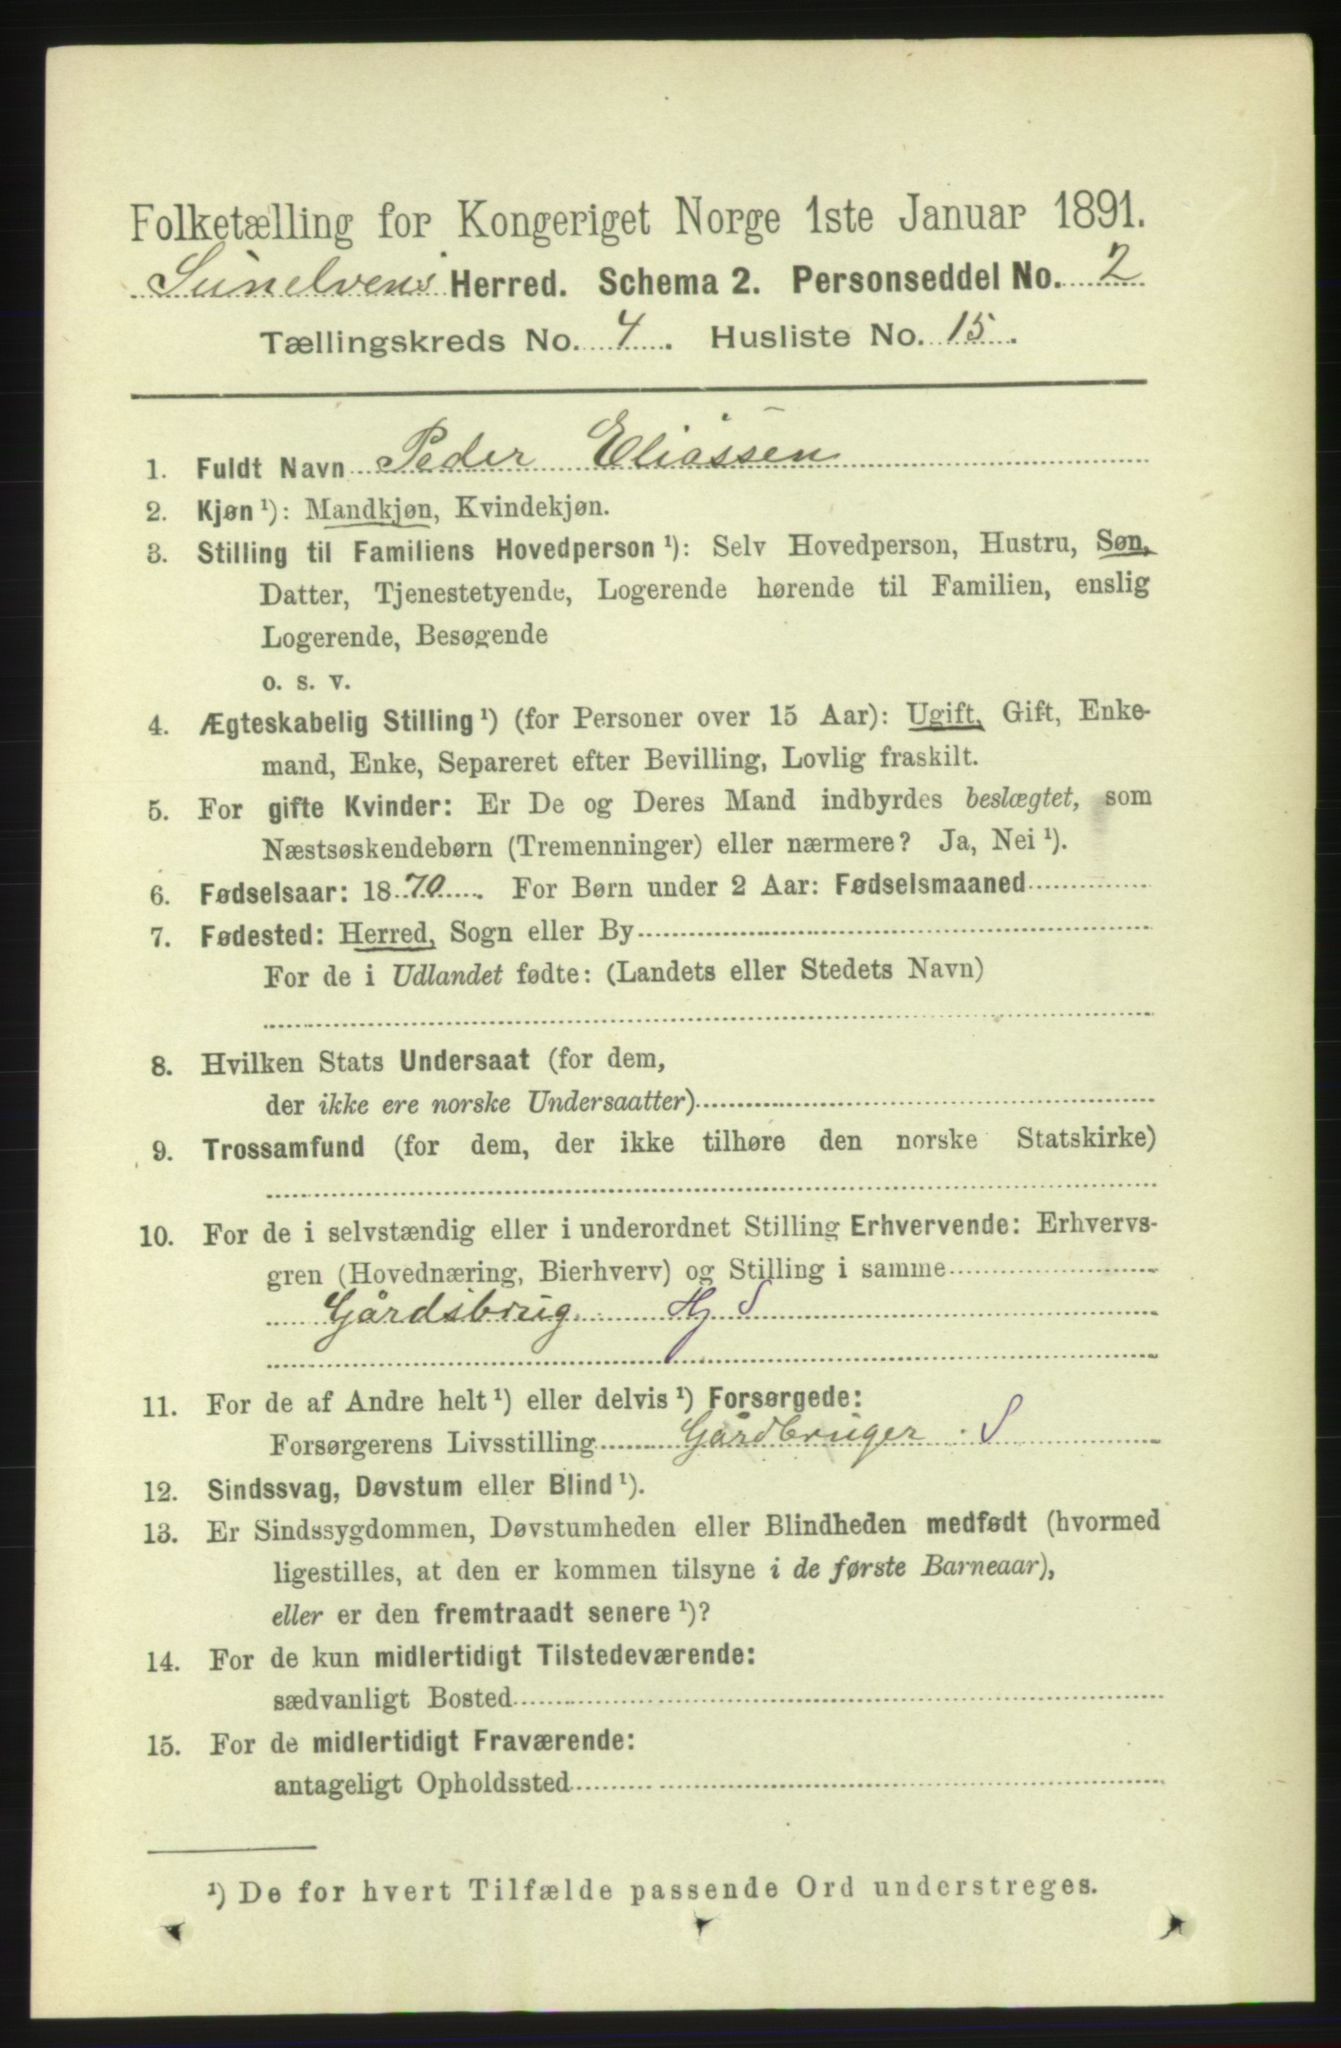 Folketælling for Kongeriget Norge 1ste Januar 1891.
Sunelvens Herred. Schema 2. Personseddel No. 2
Tællingskreds No. 4. Husliste No. 15.
1. Fuldt Navn Peder Eliassen
2. Kjøn ¹): Mandkjøn, Kvindekjøn.
3. Stilling til Familiens Hovedperson ¹): Selv Hovedperson, Hustru, Søn,
Datter, Tjenestetyende, Logerende hørende til Familien, enslig
Logerende, Besøgende
o. s. v.
4. Ægteskabelig Stilling ¹) (for Personer over 15 Aar): Ugift, Gift, Enke-
mand, Enke, Separeret efter Bevilling, Lovlig fraskilt.
5. For gifte Kvinder: Er De og Deres Mand indbyrdes beslægtet, som
Næstsøskendebørn (Tremenninger) eller nærmere? Ja, Nei ¹).
6. Fødselsaar: 1870. For Børn under 2 Aar: Fødselsmaaned
7. Fødested: Herred, Sogn eller By
For de i Udlandet fødte: (Landets eller Stedets Navn)
8. Hvilken Stats Undersaat (for dem,
der ikke ere norske Undersaatter)
9. Trossamfund (for dem, der ikke tilhøre den norske Statskirke)
10. For de i selvstændig eller i underordnet Stilling Erhvervende: Erhvervs-
gren (Hovednæring, Bierhverv) og Stilling i samme
Gårdsbrug Hj S
11. For de af Andre helt ¹) eller delvis ¹) Forsørgede:
Forsørgerens Livsstilling Gårdbruger S
12. Sindssvag, Døvstum eller Blind ¹).
13. Er Sindssygdommen, Døvstumheden eller Blindheden medfødt (hvormed
ligestilles, at den er kommen tilsyne i de første Barneaar),
eller er den fremtraadt senere ¹)?
14. For de kun midlertidigt Tilstedeværende:
sædvanligt Bosted
15. For de midlertidigt Fraværende:
antageligt Opholdssted
¹) De for hvert Tilfælde passende Ord understreges.